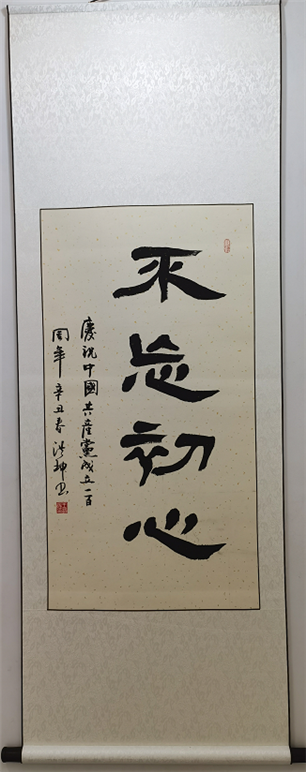 不忘初心
慶祝中國共產黨成立一百
周年 辛丑春 洪坤书